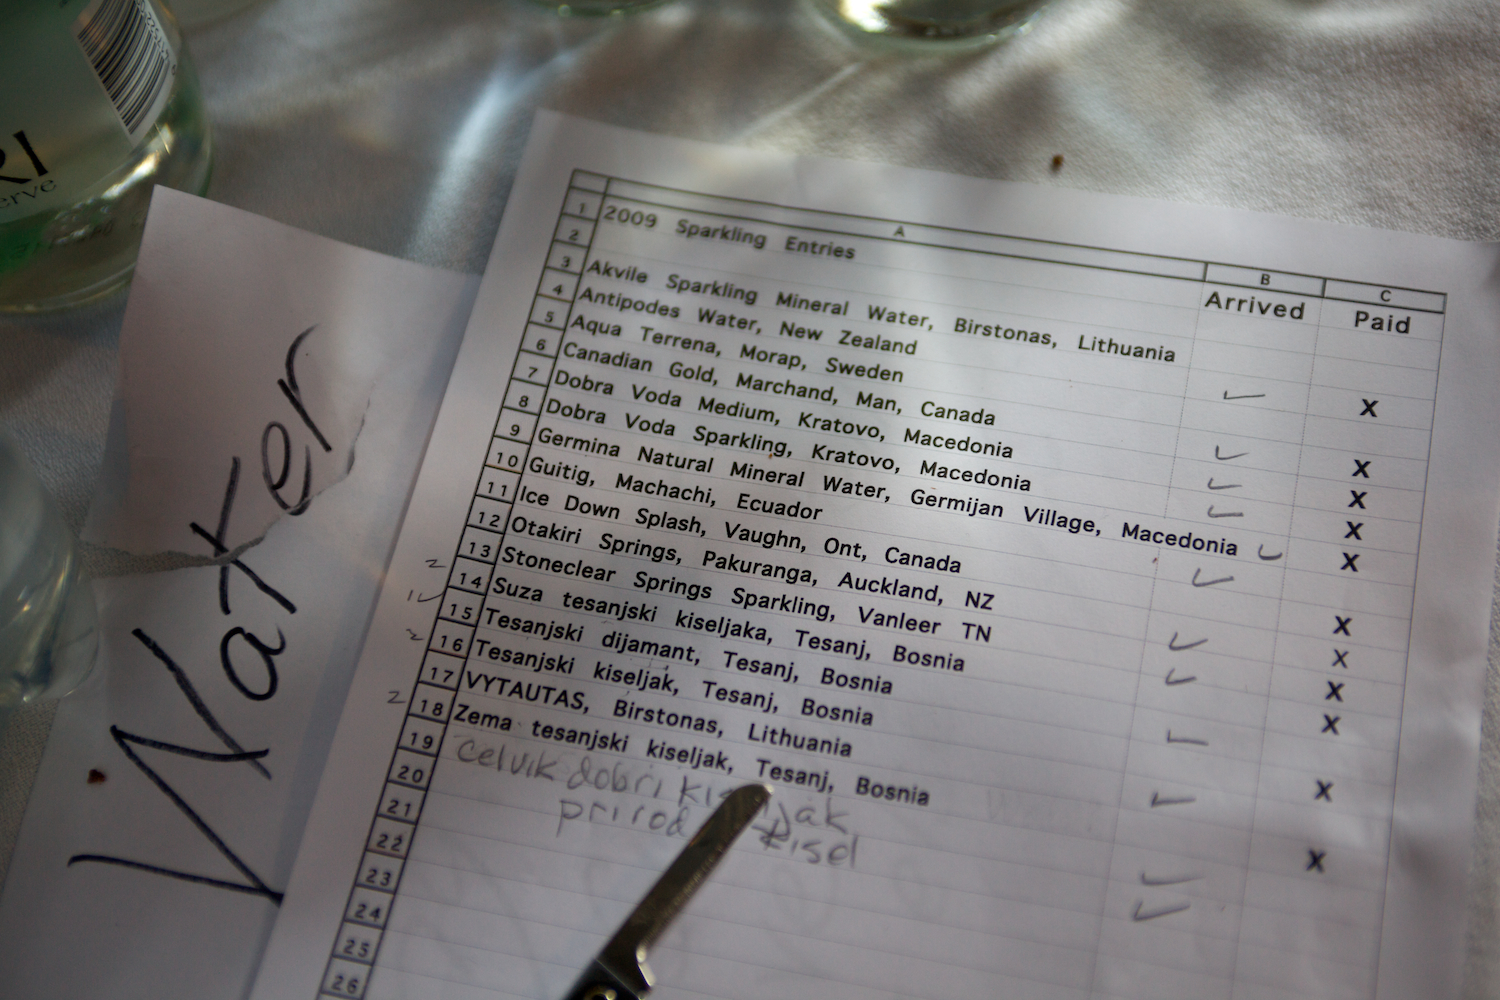 RI
erve
Water
A B C
1 2009 Sparkling Entries Arrived Paid
2
3 Akvile Sparkling Mineral Water, Birstonas, Lithuania
4 Antipodes Water, New Zealand ✓ X
5 Aqua Terrena, Morap, Sweden
6 Canadian Gold, Marchand, Man, Canada ✓ X
7 Dobra Voda Medium, Kratovo, Macedonia ✓ X
8 Dobra Voda Sparkling, Kratovo, Macedonia ✓ X
9 Germina Natural Mineral Water, Germijan Village, Macedonia ✓ X
10 Guitig, Machachi, Ecuador ✓
11 Ice Down Splash, Vaughn, Ont, Canada X
12 Otakiri Springs, Pakuranga, Auckland, NZ ✓ X
2 13 Stoneclear Springs Sparkling, Vanleer TN ✓ X
1 ✓ 14 Suza tesanjski kiseljaka, Tesanj, Bosnia X
2 15 Tesanjski dijamant, Tesanj, Bosnia ✓
16 Tesanjski kiseljak, Tesanj, Bosnia X
2 17 VYTAUTAS, Birstonas, Lithuania ✓
18 Zema tesanjski kiseljak, Tesanj, Bosnia X
19 celvik dobri
20 kisel
21
22
23
24
25
26